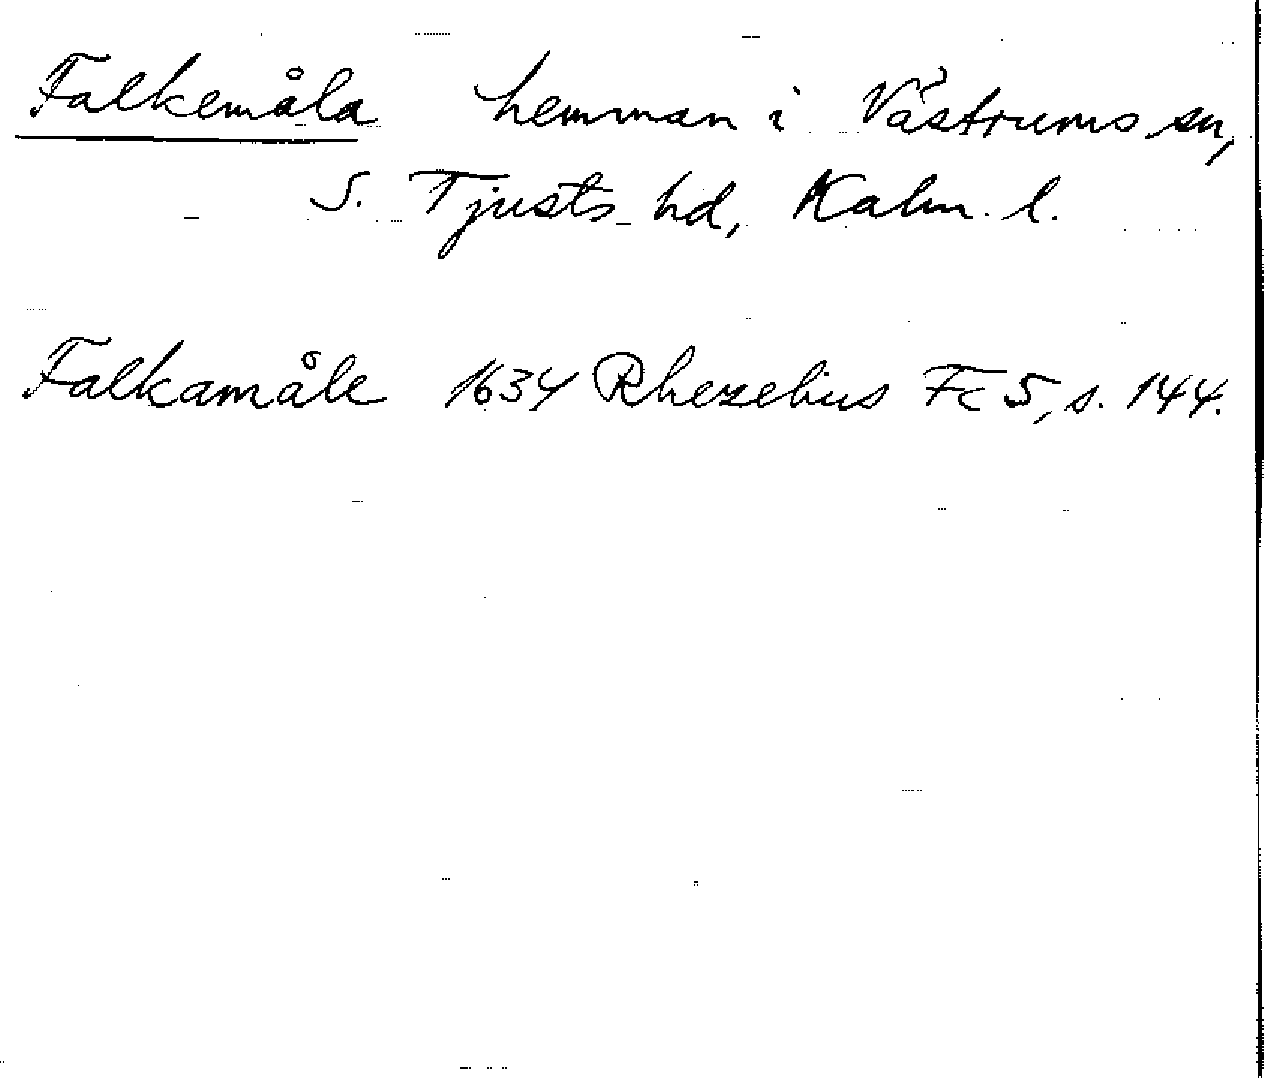 Falkemåla hemman i Västrums sn,
S. Tjusts hd, Kalm. l.
Falkamåle 1634 Rhezelius Fc 5, s. 144.